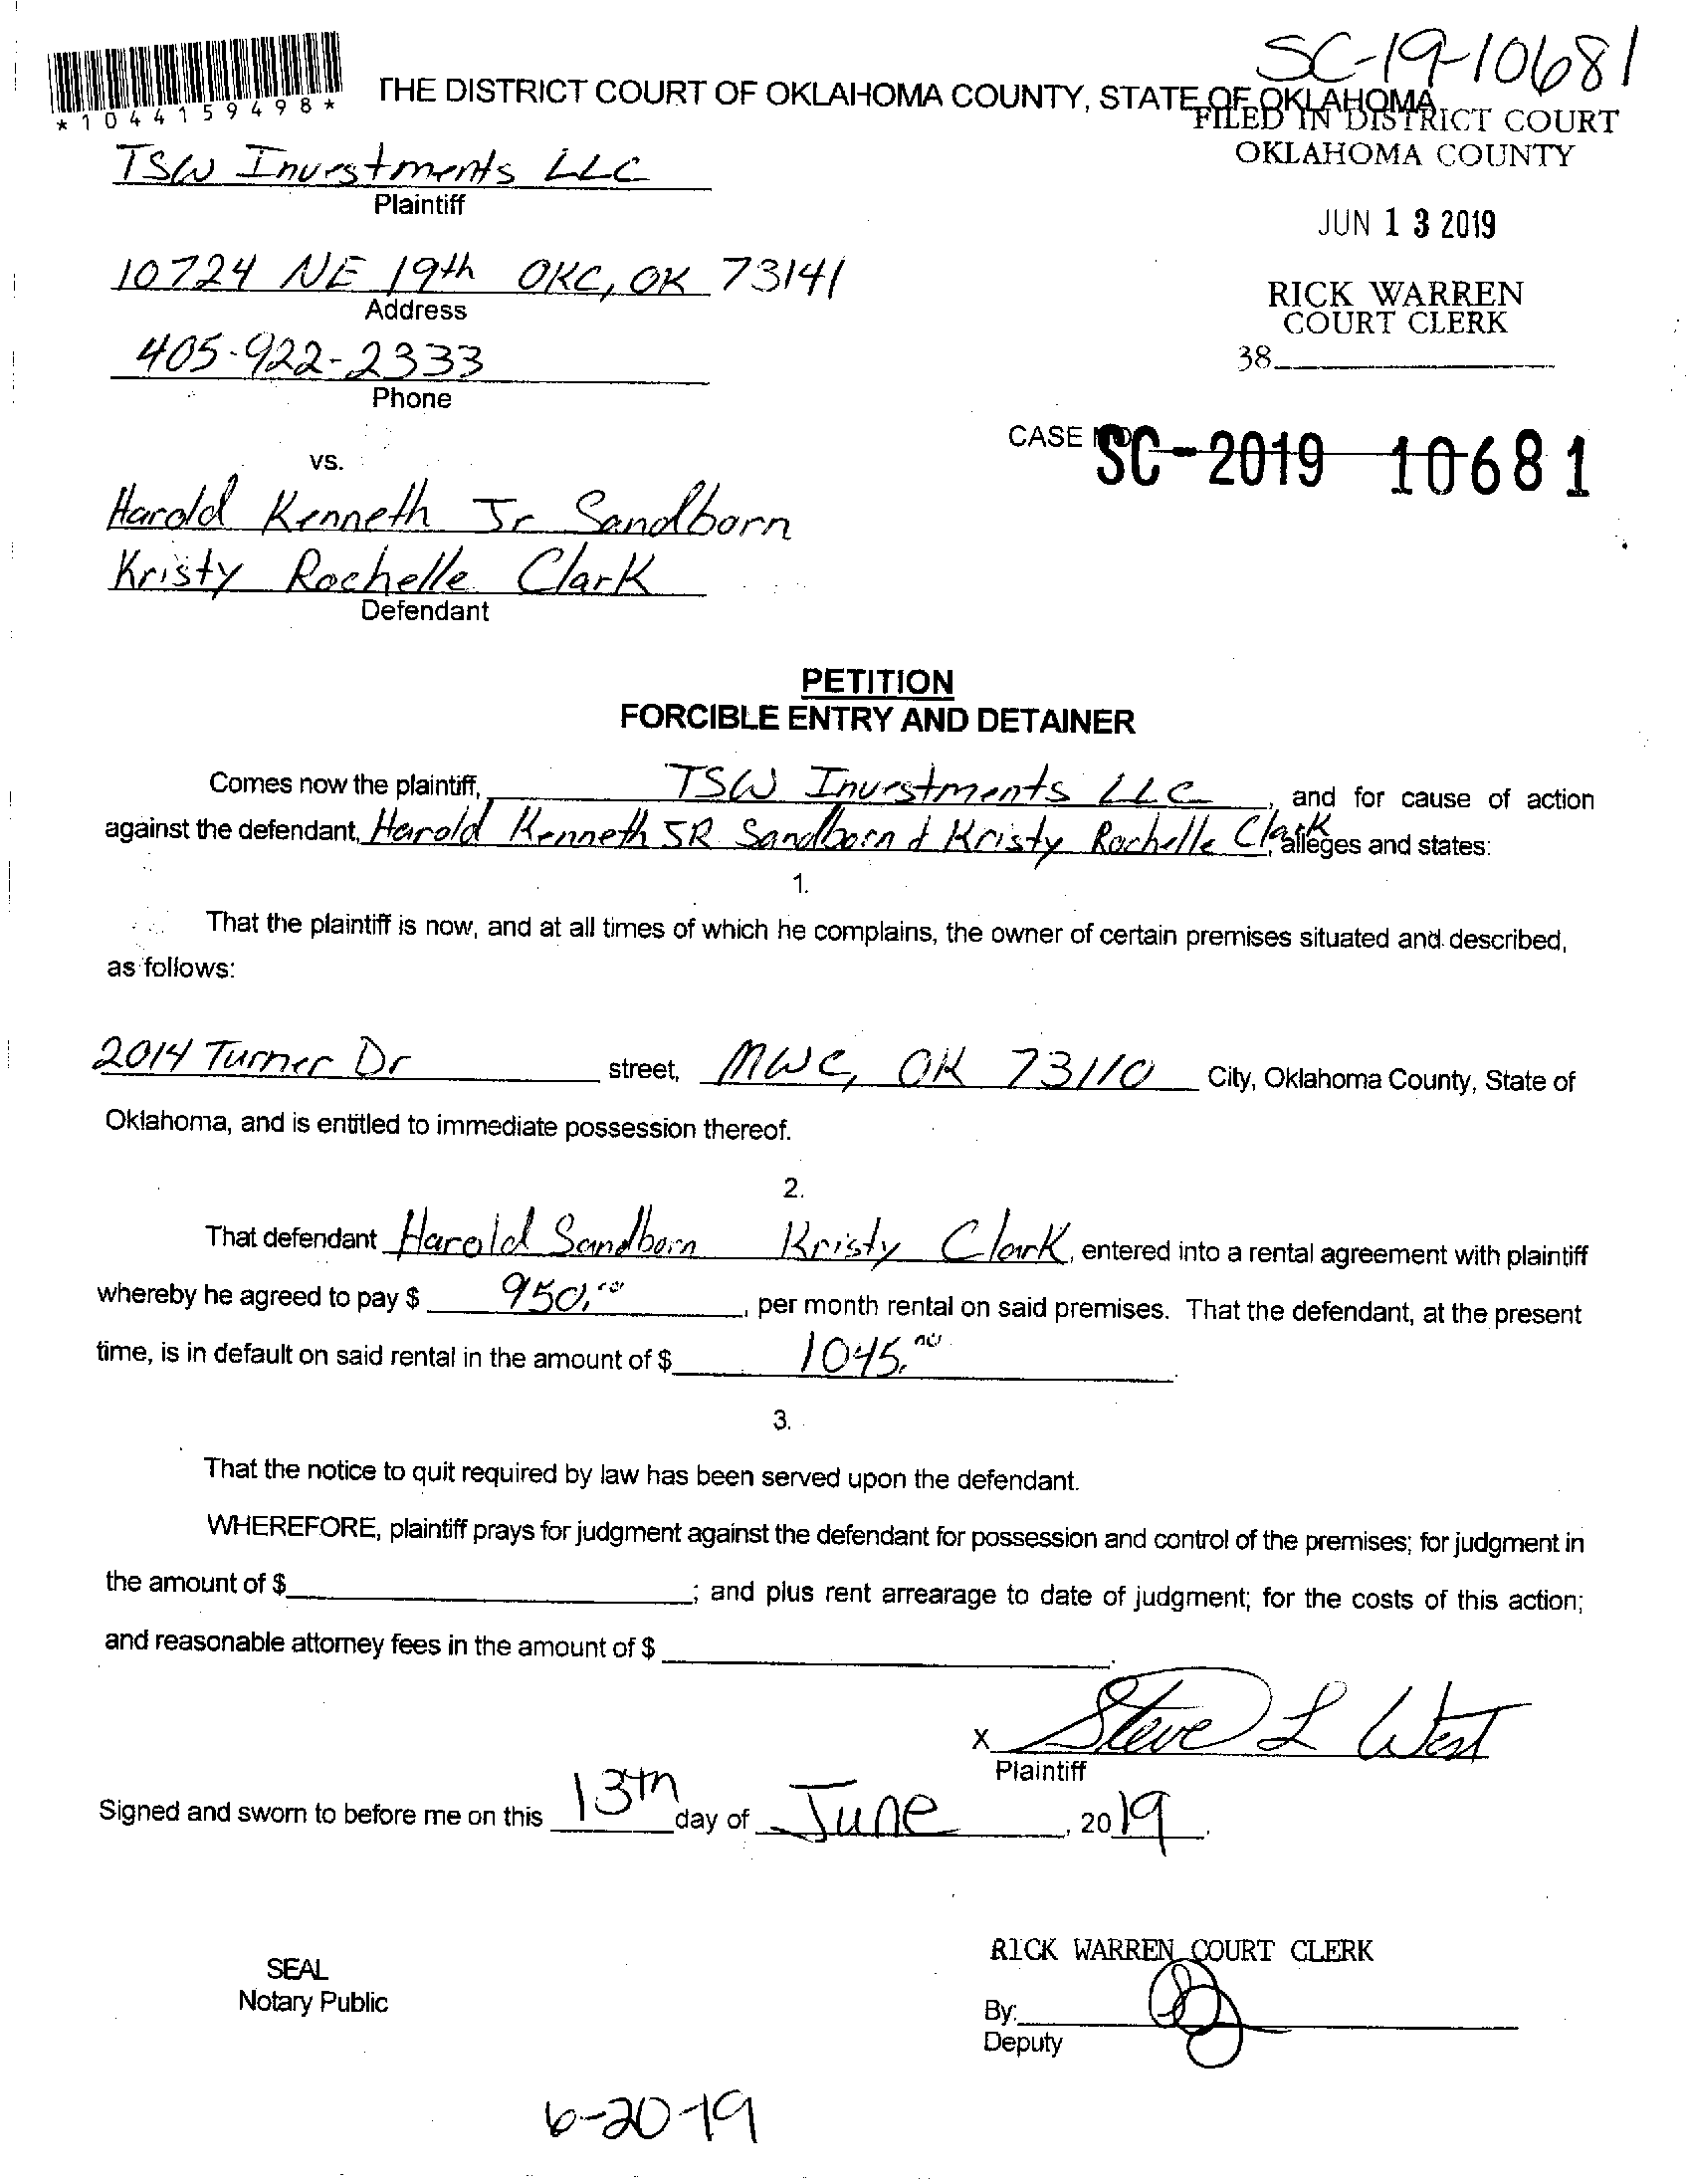 SC-19-10681
*1044159498*
THE DISTRICT COURT OF OKLAHOMA COUNTY, STATE OF OKLAHOMA
FILED IN DISTRICT COURT
OKLAHOMA COUNTY
TSW Investments LLC
Plaintiff
JUN 13 2019
10724 NE 19th OKC, OK 73141
Address
RICK WARREN
COURT CLERK
405-922-2333
Phone
38
CASE NO. SC-2019 10681
vs.
Harold Kenneth Jr Sandborn
Kristy Rochelle Clark
Defendant
PETITION
FORCIBLE ENTRY AND DETAINER
Comes now the plaintiff, TSW Investments LLC, and for cause of action
against the defendant, Harold Kenneth JR Sandborn & Kristy Rochelle Clark, alleges and states:
1.
That the plaintiff is now, and at all times of which he complains, the owner of certain premises situated and described,
as follows:
2014 Turner Dr street, MWC, OK 73110 City, Oklahoma County, State of
Oklahoma, and is entitled to immediate possession thereof.
2.
That defendant Harold Sandborn Kristy Clark, entered into a rental agreement with plaintiff
whereby he agreed to pay $ 950.00, per month rental on said premises. That the defendant, at the present
time, is in default on said rental in the amount of $ 1045.00.
3.
That the notice to quit required by law has been served upon the defendant.
WHEREFORE, plaintiff prays for judgment against the defendant for possession and control of the premises; for judgment in
the amount of $ ; and plus rent arrearage to date of judgment; for the costs of this action;
and reasonable attorney fees in the amount of $ .
X Steve L West
Plaintiff
Signed and sworn to before me on this 13th day of June, 2019.
RICK WARREN COURT CLERK
SEAL
Notary Public
By:
Deputy
6-20-19